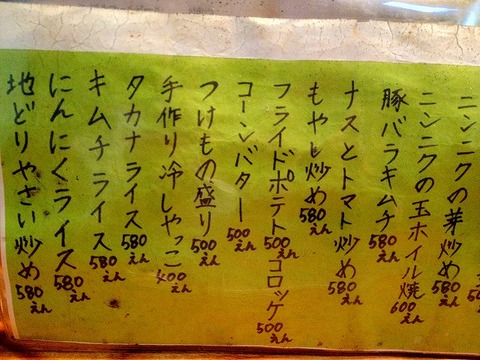 ニンニクの芽炒め 580えん
ニンニクの玉ホイル焼 600えん
豚バラキムチ 580えん
ナスとトマト炒め 580えん
もやし炒め 580えん
フライドポテト 500えん コロッケ 500えん
コーンバター 500えん
つけもの盛り 500えん
手作り冷しやっこ 400えん
タカナライス 580えん
キムチライス 580えん
にんにくライス 580えん
地どりやさい炒め 580えん